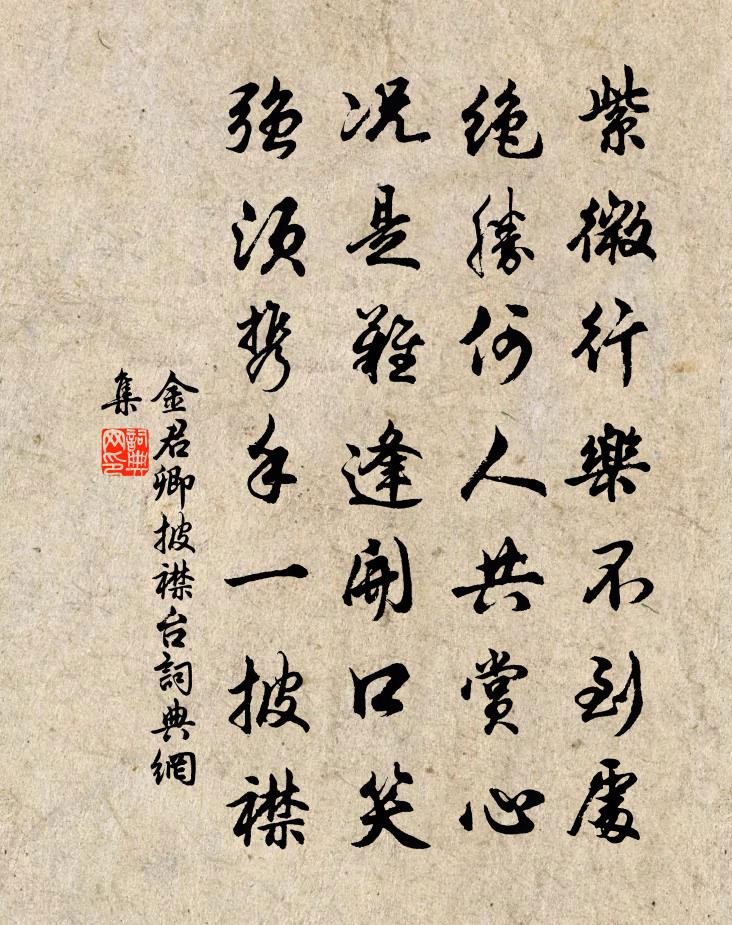 紫微行樂不到處
絶勝何人共賞心
況是難逢開口笑
強須攜手一披襟
金君卿披襟台詞典網
集
詞典
网印